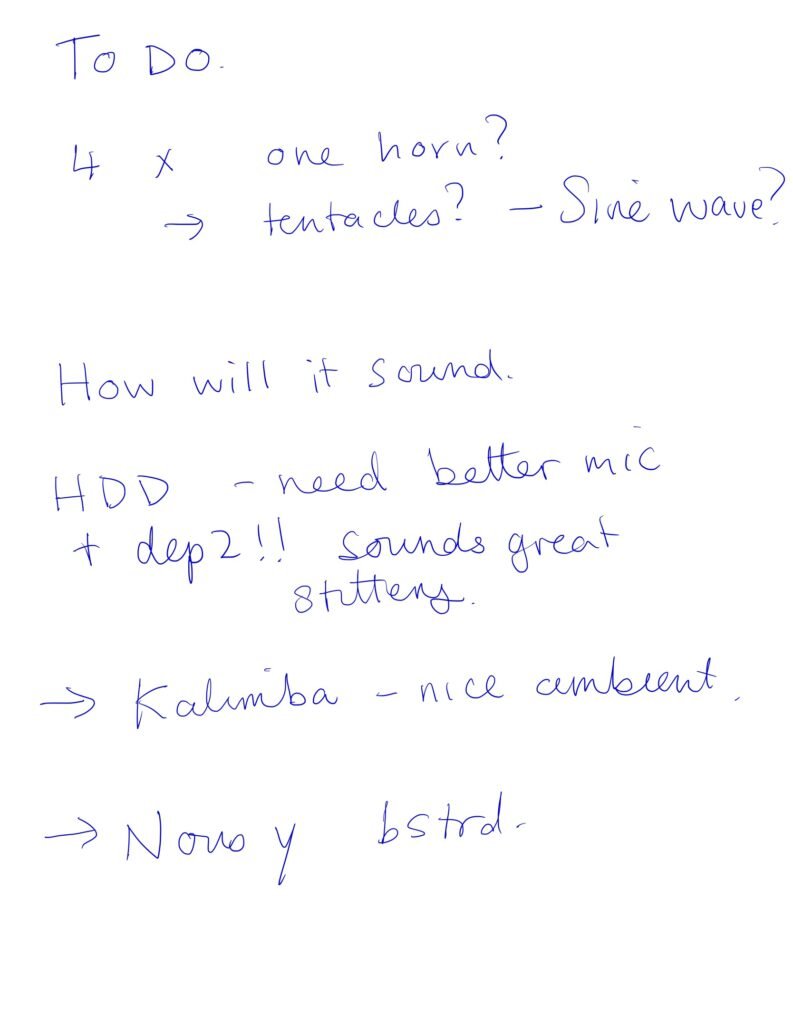 To Do.
4 x one horn?
→ tentacles? - Sine wave?
How will it sound.
HDD - need better mic
+ dep2!! sounds great
stutters.
→ Kalimba - nice ambient.
→ y bstrd.